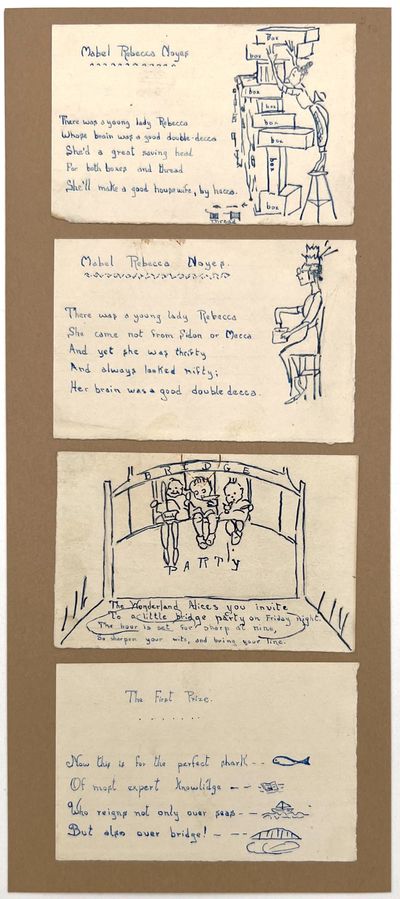 Mabel Rebecca Noyes
There was a young lady Rebecca
Whose brain was a good double-decca
She'd a great saving head
For both boxes and thread
She'll make a good housewife, by hecca.
Box
box
box
box
box
box
box
box
box
Thread
Mabel Rebecca Noyes.
There was a young lady Rebecca
She came not from Sidon or Mecca
And yet she was thrifty
And always looked nifty;
Her brain was a good double decca.
BRIDGE
PARTY
The Wonderland Alices you invite
To a little bridge party on Friday night.
The hour is set for sharp at nine,
So sharpen your wits, and bring your line.
The First Prize.
Now this is for the perfect shark - -
Of most expert knowlidge - -
Who reigns not only over seas -
But also over bridge! - - -